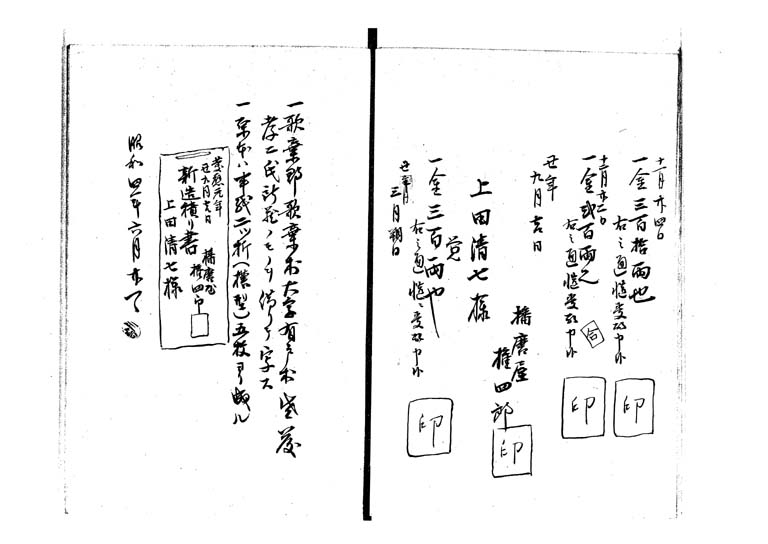 十二月廿四日
一金三百拾両也
右之通慥ニ受取申候
印
十二月廿二日
一金弐百両也
右之通慥ニ受取申候
合
印
丑年
九月吉日
播磨屋
権四郎
印
上田清七様
覚
一金三百両也
右之通慥ニ受取申候
印
三月朔日
一歌棄郡歌棄村大字有戸村
孝二氏所蔵ノモノヨリ借リテ字ス
一原本ハ半紙二ツ折(横型)五枚ヨリ成ル
慶應元年
丑九月吉日
播磨屋
権四郎
新造積り書
上田清七様
昭和四年六月